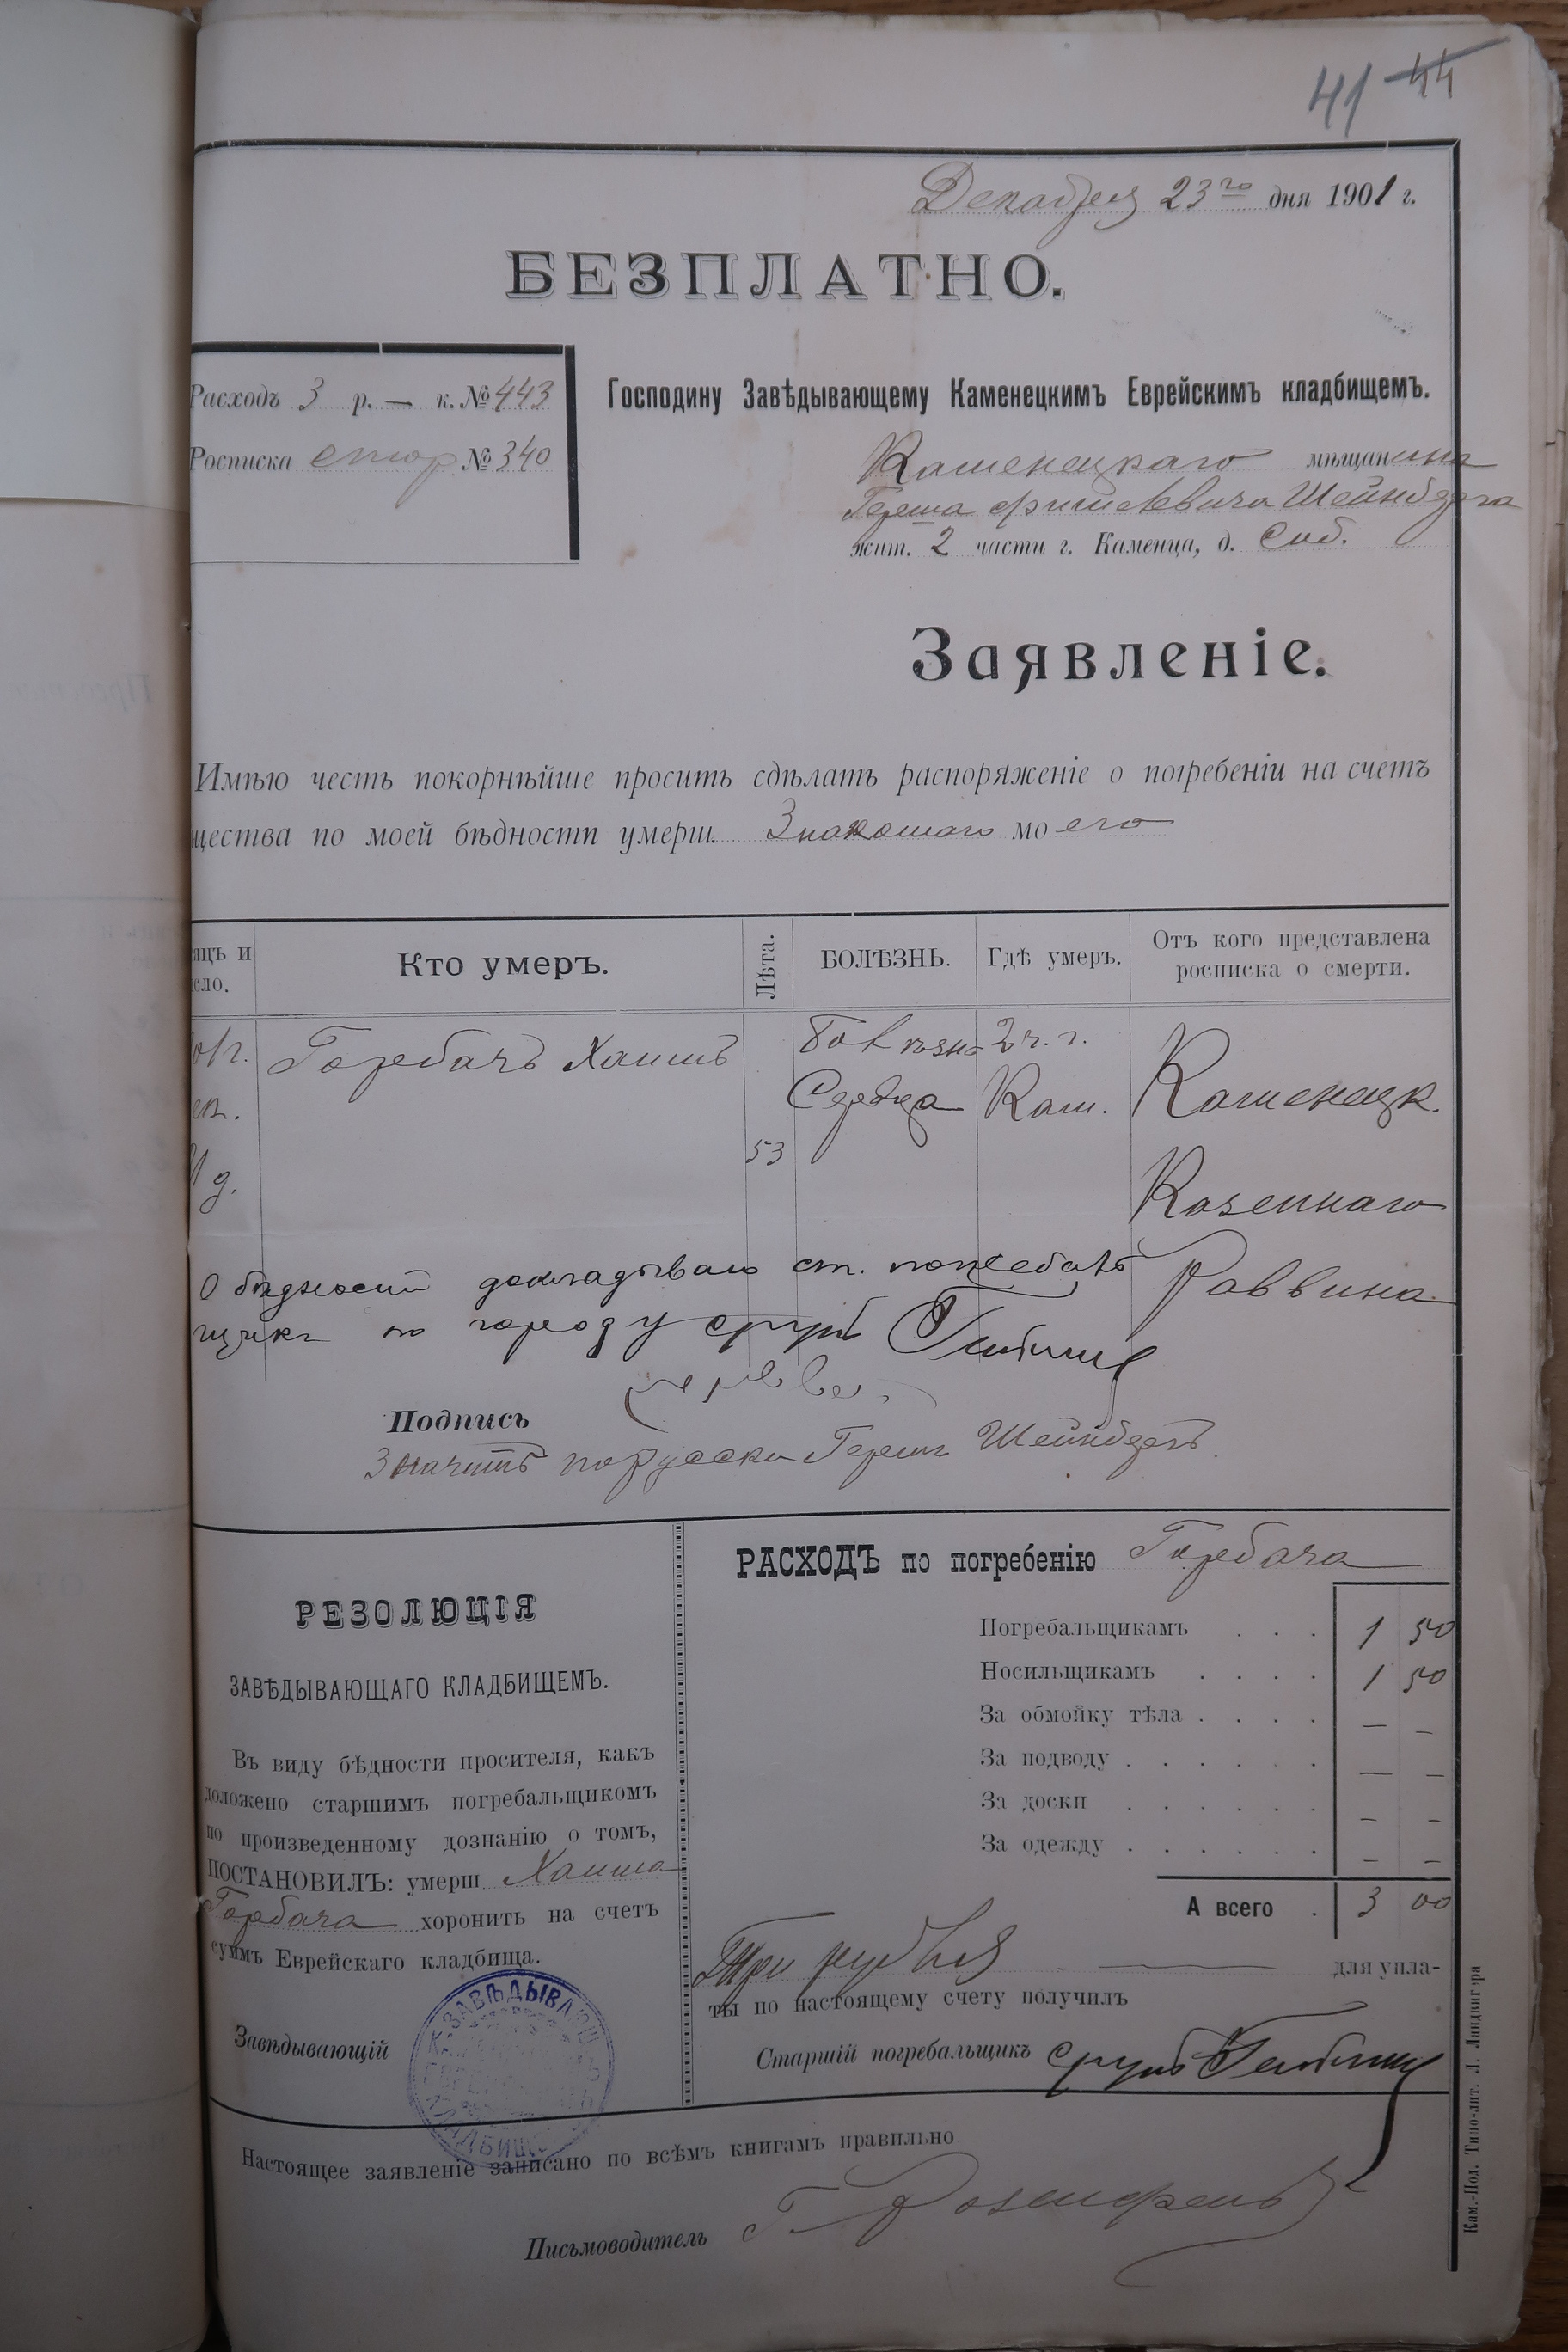 41 44
Декабря 23го дня 1901 г.
БЕЗПЛАТНО.
Расходъ 3 р. — к. № 443
Росписка № 340
Господину Завѣдывающему Каменецкимъ Еврейскимъ кладбищемъ.
Каменецкаго мѣщанина
Герша Шейнберга
жит. 2 части г. Каменца, д. Соб.
Заявленіе.
Имѣю честь покорнѣйше просить сдѣлать распоряженіе о погребеніи на счетъ
щества по моей бѣдности умерш. Знакомаго моего
яцъ и
сло.
Кто умеръ.
Лѣта.
БОЛѢЗНЬ.
Гдѣ умеръ.
Отъ кого представлена
росписка о смерти.
Горбачъ Хаимъ
53
Болѣзнь
Сердца
2 ч. г.
Кам.
Каменецк.
Казеннаго
Раввина
О бѣдности докладываю ст. погребаль
щикъ по городу Срулъ
Подпись
Значитъ по русски Гершъ Шейнбергъ.
РЕЗОЛЮЦІЯ
ЗАВѢДЫВАЮЩАГО КЛАДБИЩЕМЪ.
Въ виду бѣдности просителя, какъ
доложено старшимъ погребальщикомъ
по произведенному дознанію о томъ,
ПОСТАНОВИЛЪ: умерш Хаима
Горбача хоронить на счетъ
суммъ Еврейскаго кладбища.
Завѣдывающій
РАСХОДЪ по погребенію Горбача
Погребальщикамъ . . . 1 50
Носильщикамъ . . . . 1 50
За обмойку тѣла . . . . — —
За подводу . . . . . . — —
За доски . . . . . . — —
За одежду . . . . . . — —
А всего . 3 00
Три рубля — для упла-
ты по настоящему счету получилъ
Старшій погребальщикъ Срулъ
Настоящее заявленіе записано по всѣмъ книгамъ правильно
Письмоводитель
Кам.-Под. Типо-лит. Л. Ландвигера